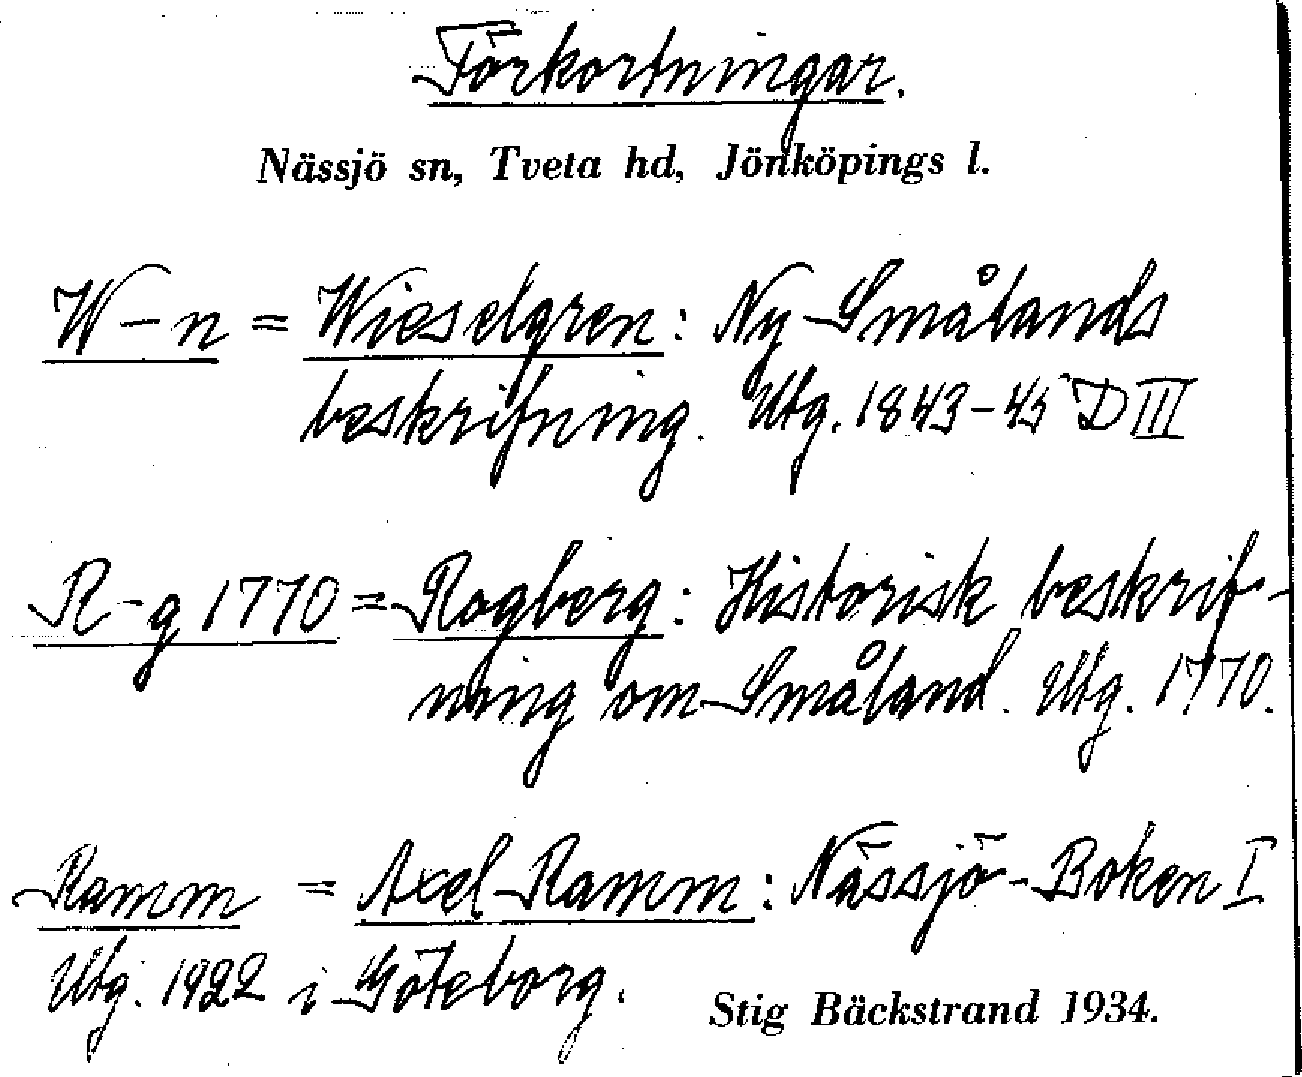 Förkortningar.
Nässjö sn, Tveta hd, Jönköpings l.
W-n = Wieselgren: Ny Smålands
beskrifning. Utg. 1843-45 D III
R-g 1770 = Rogberg: Historisk beskrif-
ning om Småland. Utg. 1770.
Ramm = Axel Ramm: Nässjö-Boken I
Utg. 1922 i Göteborg.
Stig Bäckstrand 1934.